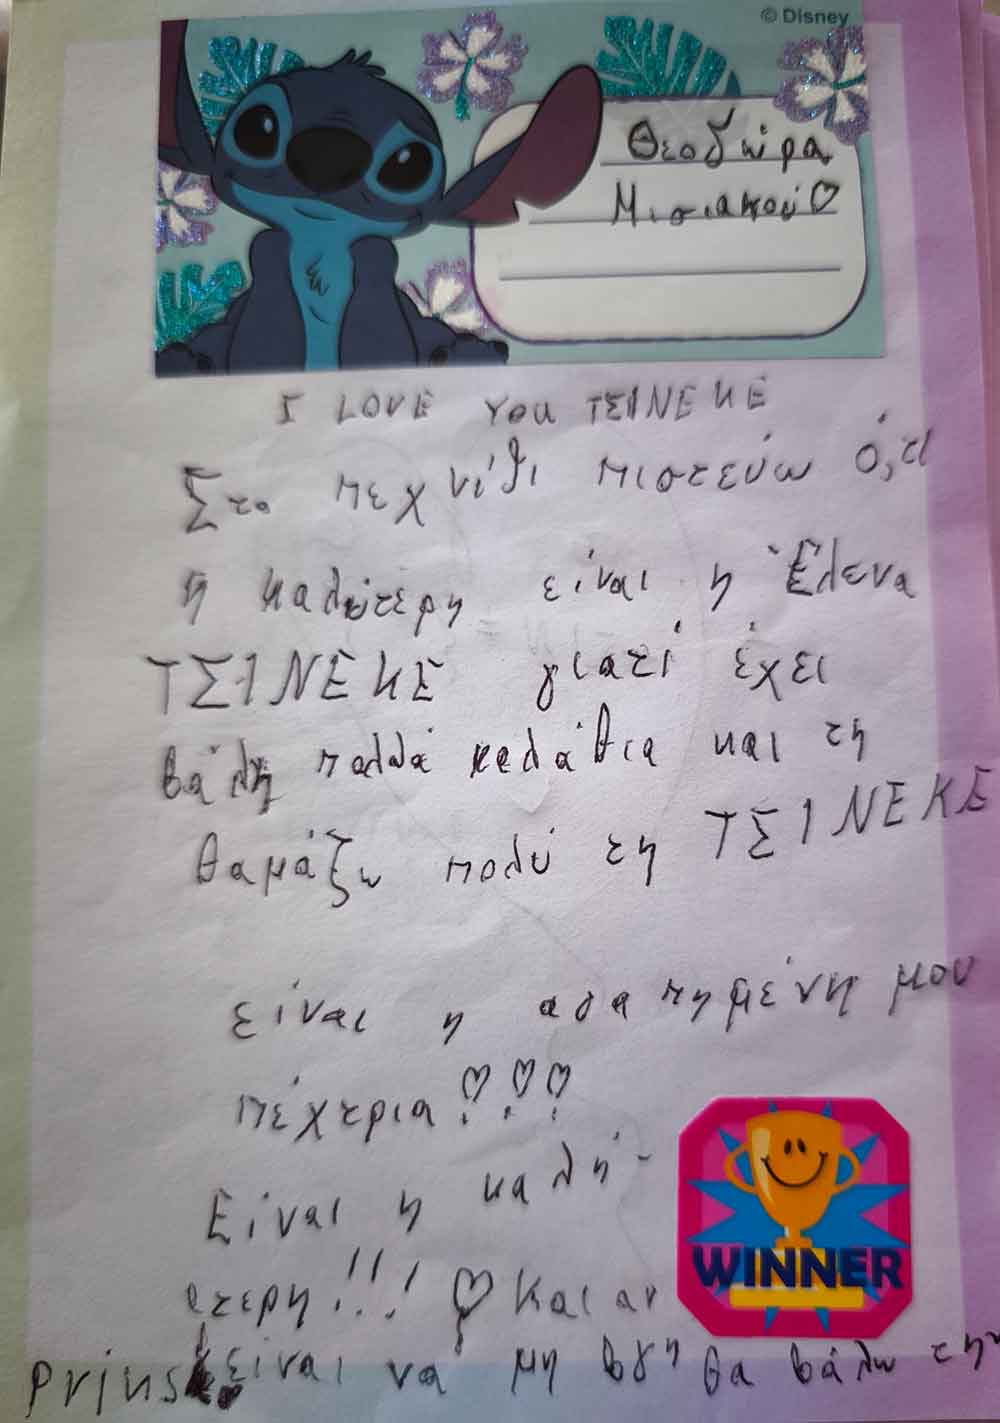 © Disney
Θεοδώρα
Μισιακού♡
I LOVE YOU ΤΣΙΝΕΚΕ
Στο πεχνίδι πιστεύω ό,τι
η καλύτερη είναι η Έλενα
ΤΣΙΝΕΚΕ γιατί έχει
βάλη πολλά καλάθια και τη
θαμάζω πολύ τη ΤΣΙΝΕΚΕ
είναι η αγαπημένη μου
πέχτρια ♡♡♡!!!
Είναι η καλή-
τερη!!! ♡ Και αν
WINNER
είναι να μη βγη θα βάλω την